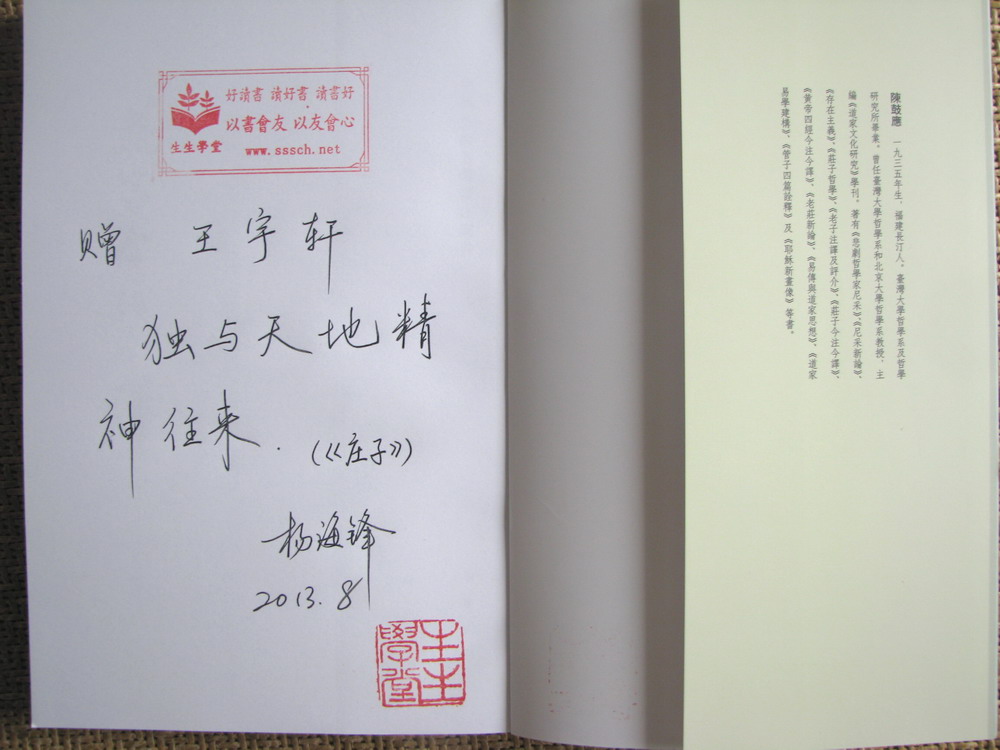 好讀書 讀好書 讀書好
以書會友 以友會心
生生學堂
www.sssch.net
赠 王宇轩
独与天地精
神往来.(《庄子》)
杨海锋
2013.8
生生學堂
陳鼓應 一九三五年生，福建長汀人。臺灣大學哲學系及哲學
研究所畢業。曾任臺灣大學哲學系和北京大學哲學系教授，主
編《道家文化研究》學刊。著有《悲劇哲學家尼采》、《尼采新論》、
《存在主義》、《莊子哲學》、《老子注譯及評介》、《莊子今注今譯》、
《黃帝四經今注今譯》、《老莊新論》、《易傳與道家思想》、《道家
易學建構》、《管子四篇詮釋》及《耶穌新畫像》等書。